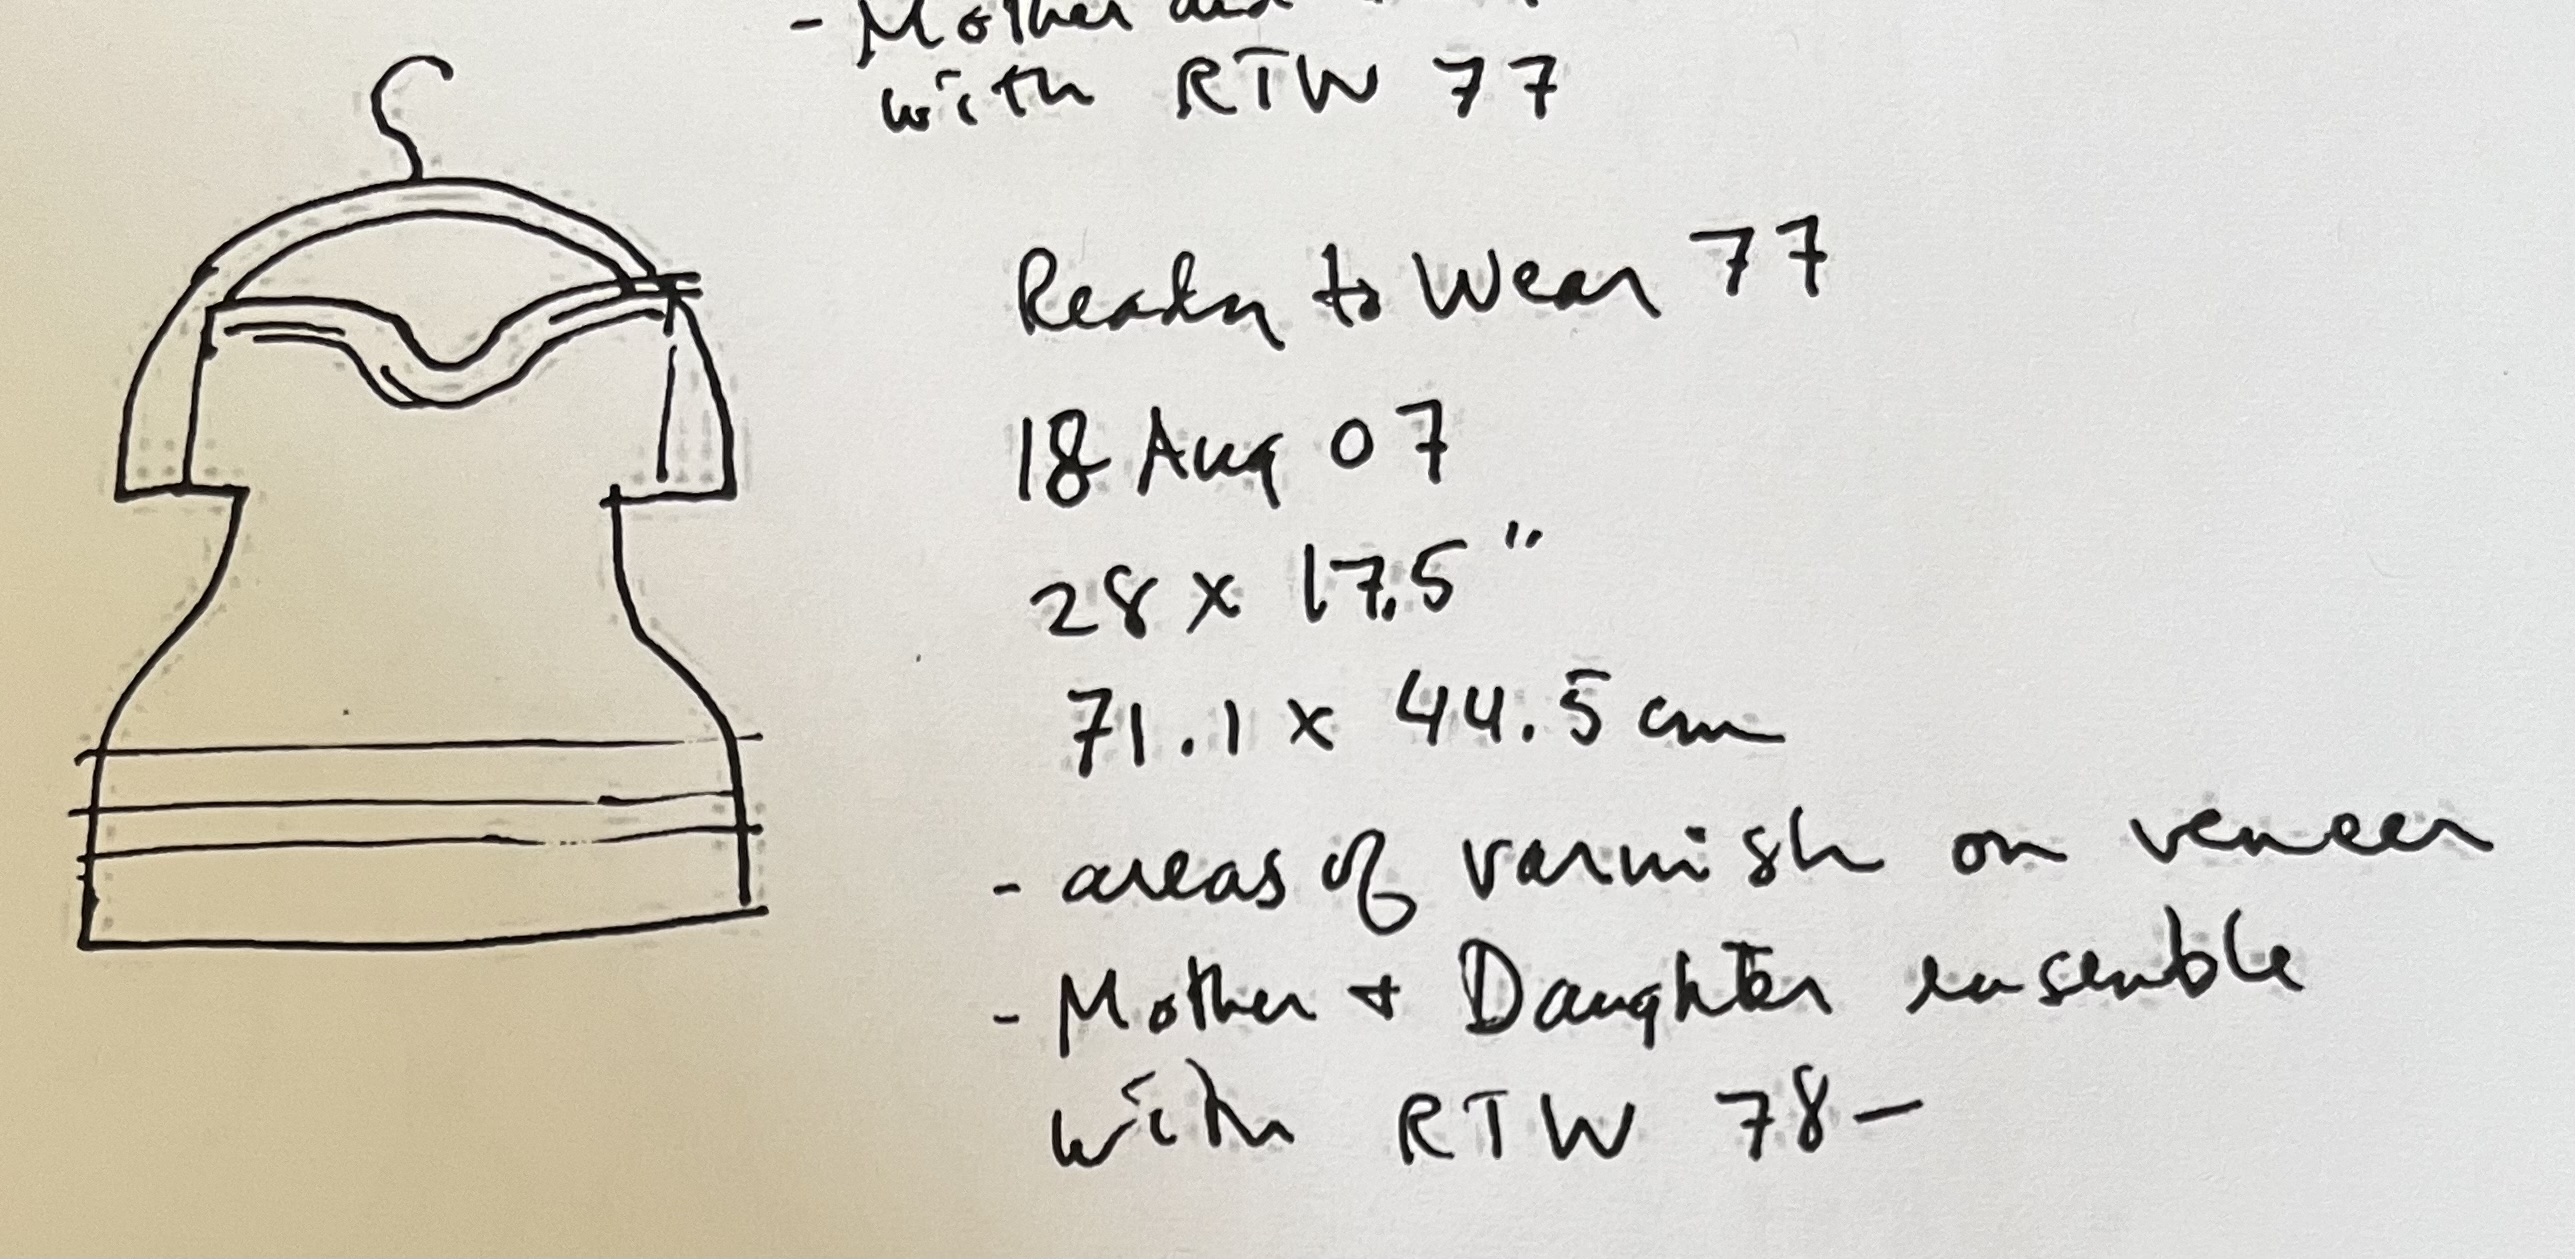 - Mother and
with RTW 77
Ready to Wear 77
18 Aug 07
28 x 17.5"
71.1 x 44.5 cm
- areas of varnish on veneer
- Mother + Daughter ensemble
with RTW 78-